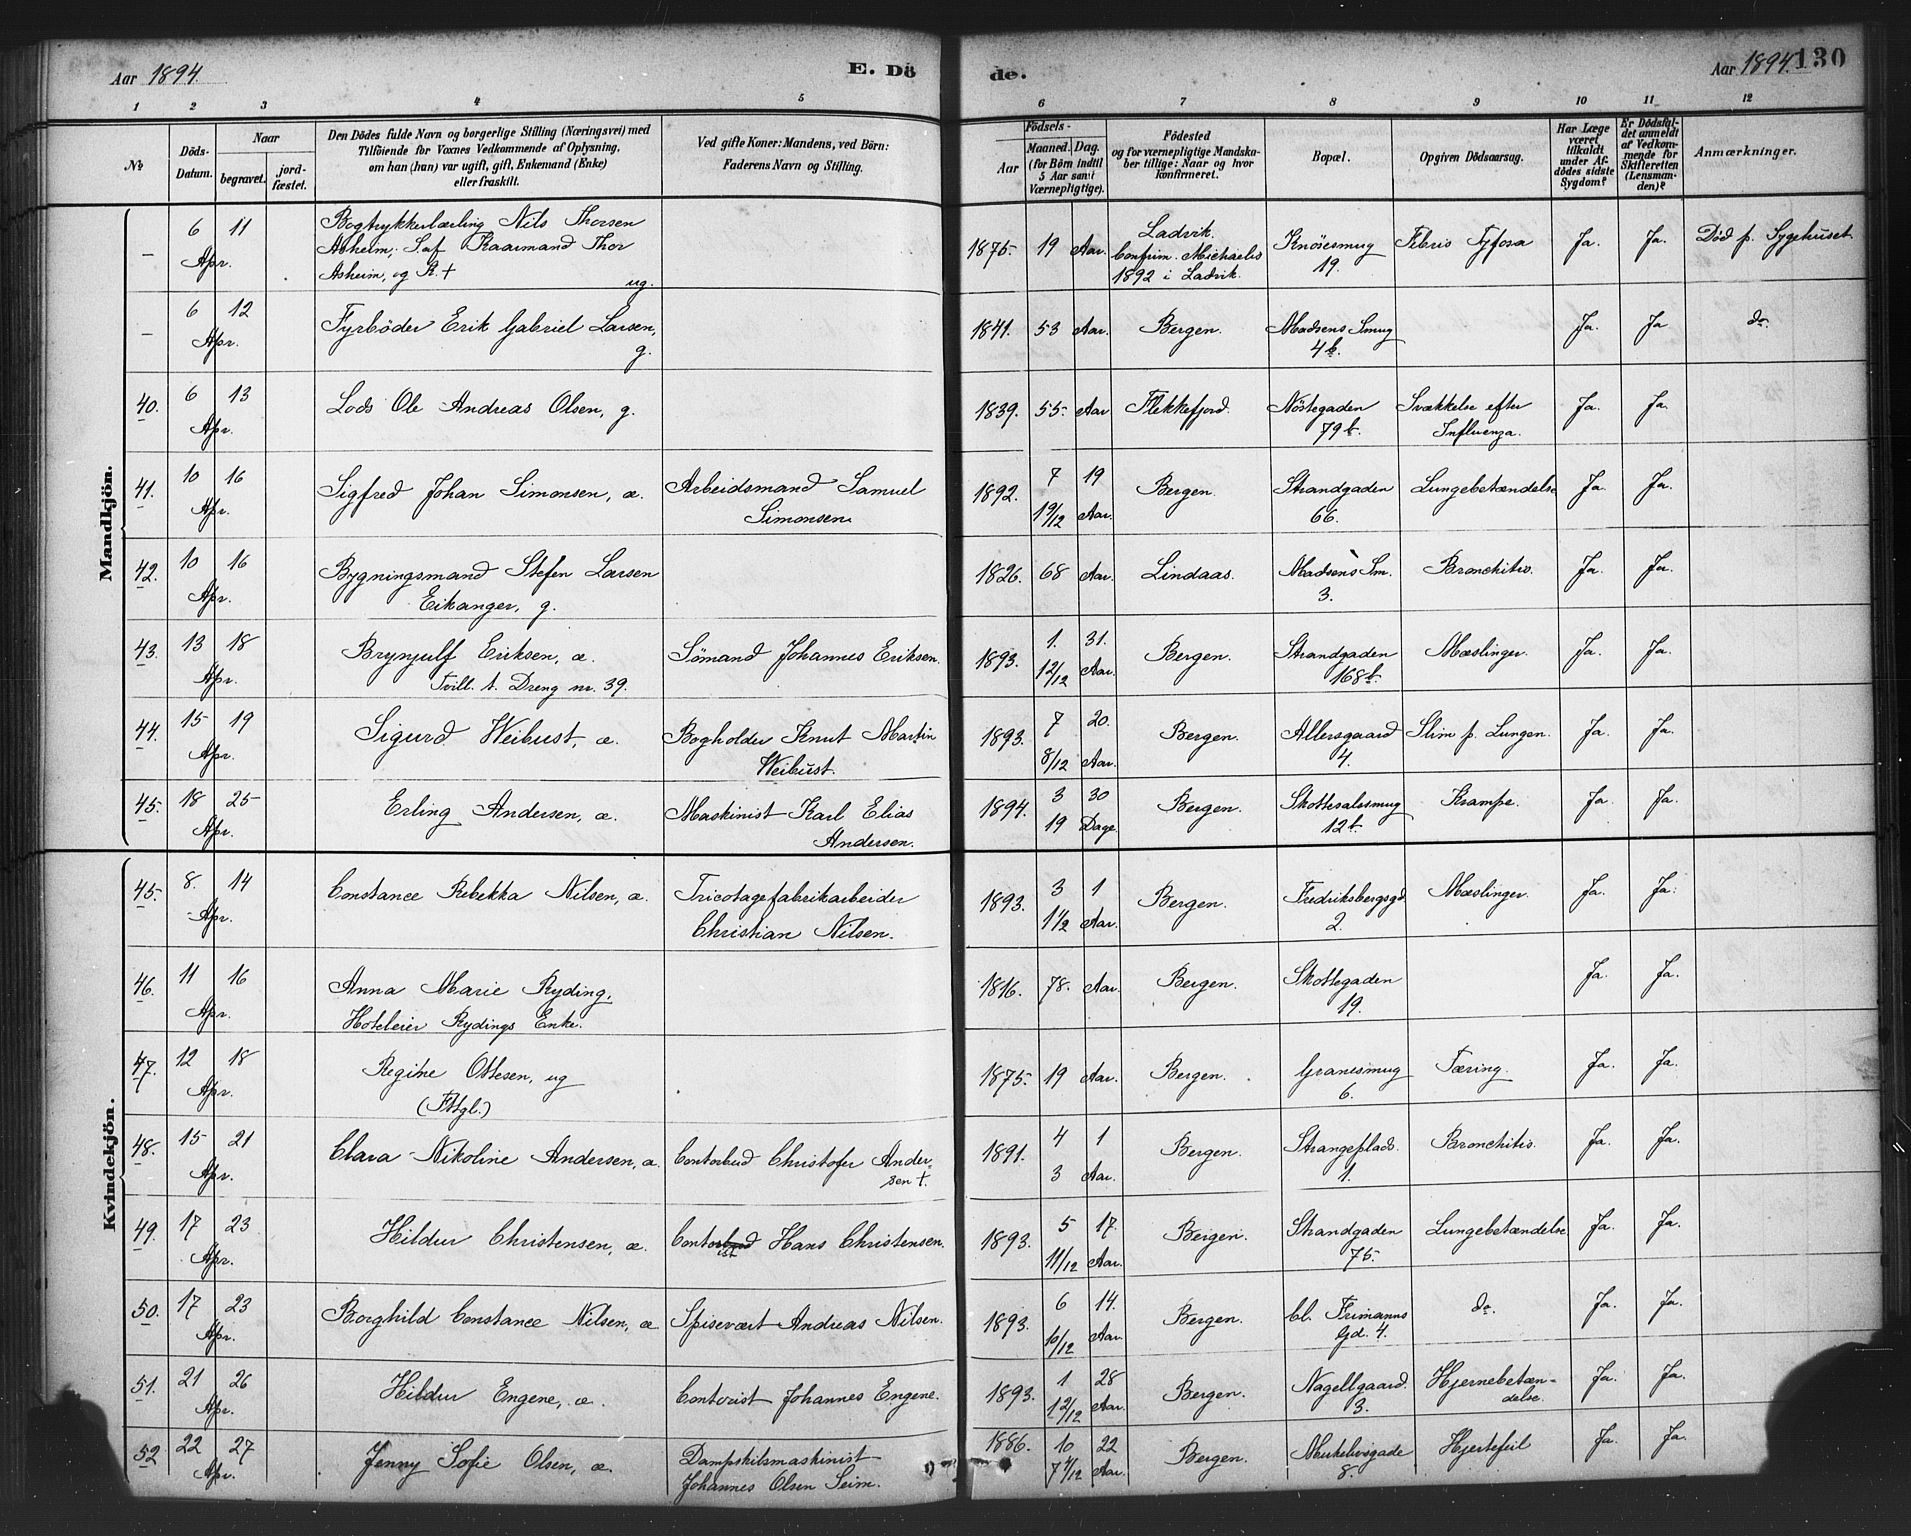 Aar 1894. E. Dö de. Aar 1894. 130
1 2 3 4 5 6 7 8 9 10 11 12
№ Döds-Datum. Naar begravet. jordfæstet. Den Dödes fulde Navn og borgerlige Stilling (Næringsvei) med Tilföiende for Voxnes Vedkommende af Oplysning, om han (hun) var ugift, gift, Enkemand (Enke) eller fraskilt. Ved gifte Koner: Mandens, ved Börn: Faderens Navn og Stilling. Födsels- Aar Maaned. Dag. (for Börn indtil 5 Aar samt Værnepligtige). Födested og for værnepligtige Mandskaber tillige: Naar og hvor konfirmeret. Bopæl. Opgiven Dödsaarsag. Har Læge været tilkaldt under Afdödes sidste Sygdom? Er Dödsfaldet anmeldt af Vedkommende for Skifteretten (Lensmanden)? Anmærkninger.
Mandkjön.
– 6 Apr. 11 Bogtrykkerlærling Nils Thorsen 1875. 19 Aar. Ladvik. Knösesmug Febris Tyfosa Ja. Ja. Död p. Sygehuset
Asheim, Søf Kaarmand Thor Confirm. Michaelis 19.
Asheim, og R. + ug. 1892 i Ladvik.
– 6 Apr. 12 Fyrböder Erik Gabriel Larsen, 1841. 53 Aar. Bergen. Madsens Smug Ja. Ja do.
g. 4b.
40. 6 Apr. 13 Lods Ole Andreas Olsen, g. 1839. 55. Aar Flekkefjord. Nöstegaden Svækkelse efter Ja. Ja.
79b. Influenza.
41. 10 Apr. 16 Sigfred Johan Simonsen, æ. Arbeidsmand Samuel 1892. 7 19 Bergen. Strandgaden Lungebetændelse Ja. Ja.
Simonsen. 1 9/12 Aar. 66.
42. 10 Apr. 16 Bygningsmand Stefen Larsen 1826. 68 Aar. Lindaas. Madsens Sm. Bronchitis. Ja. Ja.
Eikanger, g. 3.
43. 13 Apr. 18 Brynjulf Eriksen, æ. Sömand Johannes Eriksen. 1893. 1. 31. Bergen. Strandgaden Mæslinger. Ja. Ja.
Tvill. t. Dreng nr. 39. 12/12 Aar. 168b.
44. 15 Apr. 19 Sigurd Weibust, æ. Bogholder Knut Martin 1893. 7 20. Bergen. Allersgaard Slim p. Lungen. Ja. Ja.
Weibust. 8/12 Aar. 4.
45. 18 Apr. 25 Erling Andersen, æ. Maskinist Karl Elias 1894. 3 30 Bergen. Skottesalssmug Krampe. Ja. Ja.
Andersen. 19 Dage. 12b.
Kvindekjön.
45. 8. Apr. 14 Constance Rebekka Nilsen, æ. Tricotagefabrikarbeider 1893. 3 1 Bergen. Fredriksbergsgd. Mæslinger. Ja. Ja.
Christian Nilsen. 1 1/2 Aar. 2.
46. 11 Apr. 16 Anna Marie Ryding, 1816. 78. Aar. Bergen. Skottegaden Ja. Ja.
Hoteleier Rydings Enke. 19.
47. 12 Apr. 18 Regine Ottesen, ug 1875. 19 Aar. Bergen. Granesmug Tæring. Ja. Ja.
(Fttgl.) 6.
48. 15 Apr. 21 Clara Nikoline Andersen, æ. Contorbud Christofer Ander- 1891. 4 1 Bergen. Strangeplads. Bronchitis. Ja. Ja.
sen +. 3 Aar. 1.
49. 17 Apr. 23 Hildur Christensen, æ. Contorist Hans Christensen. 1893. 5 17. Bergen. Strandgaden Lungebetændelse Ja. Ja.
11/12 Aar. 75.
50. 17 Apr. 23 Borghild Constance Nilsen, æ Spisevært Andreas Nilsen. 1893. 6 14. Bergen. Cl. Frimanns do. Ja. Ja.
10/12 Aar. Gd. 4.
51. 21 Apr. 26 Hildur Engene, æ. Contorist Johannes Engene. 1893. 1 28 Bergen. Nagellgaard. Hjernebetæn- Ja. Ja.
12/12 Aar. 3. delse.
52 22 Apr. 27 Jenny Sofie Olsen, æ. Dampskibsmaskinist 1886. 10 22 Bergen. Munkelivsgade Hjertefeil Ja. Ja.
Johannes Olsen Seim. Aar. 8.